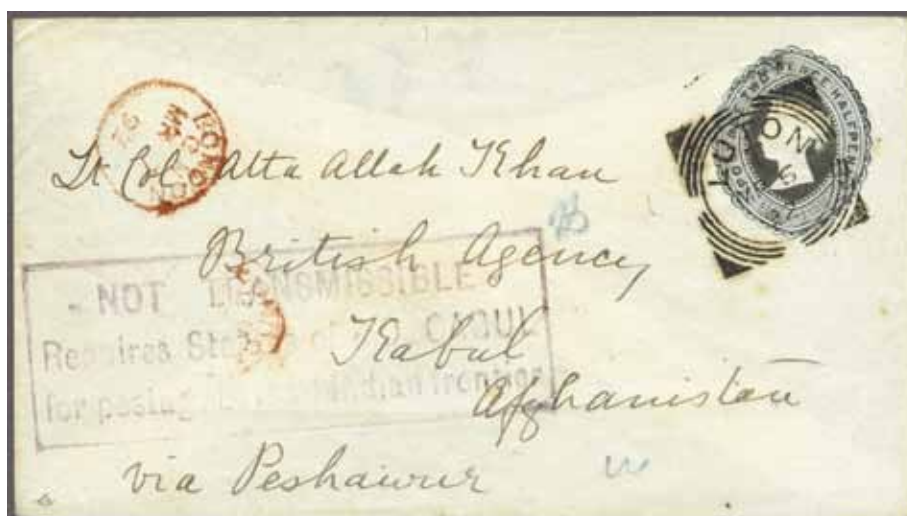 TWO PENCE HALFPENNY
LONDON
92
Lt Col Atta Allah Khan
British Agency
Kabul
Afghanistan
via Peshawur
NOT TRANSMISSIBLE
Requires Stamps of CABUL
for Indian frontier